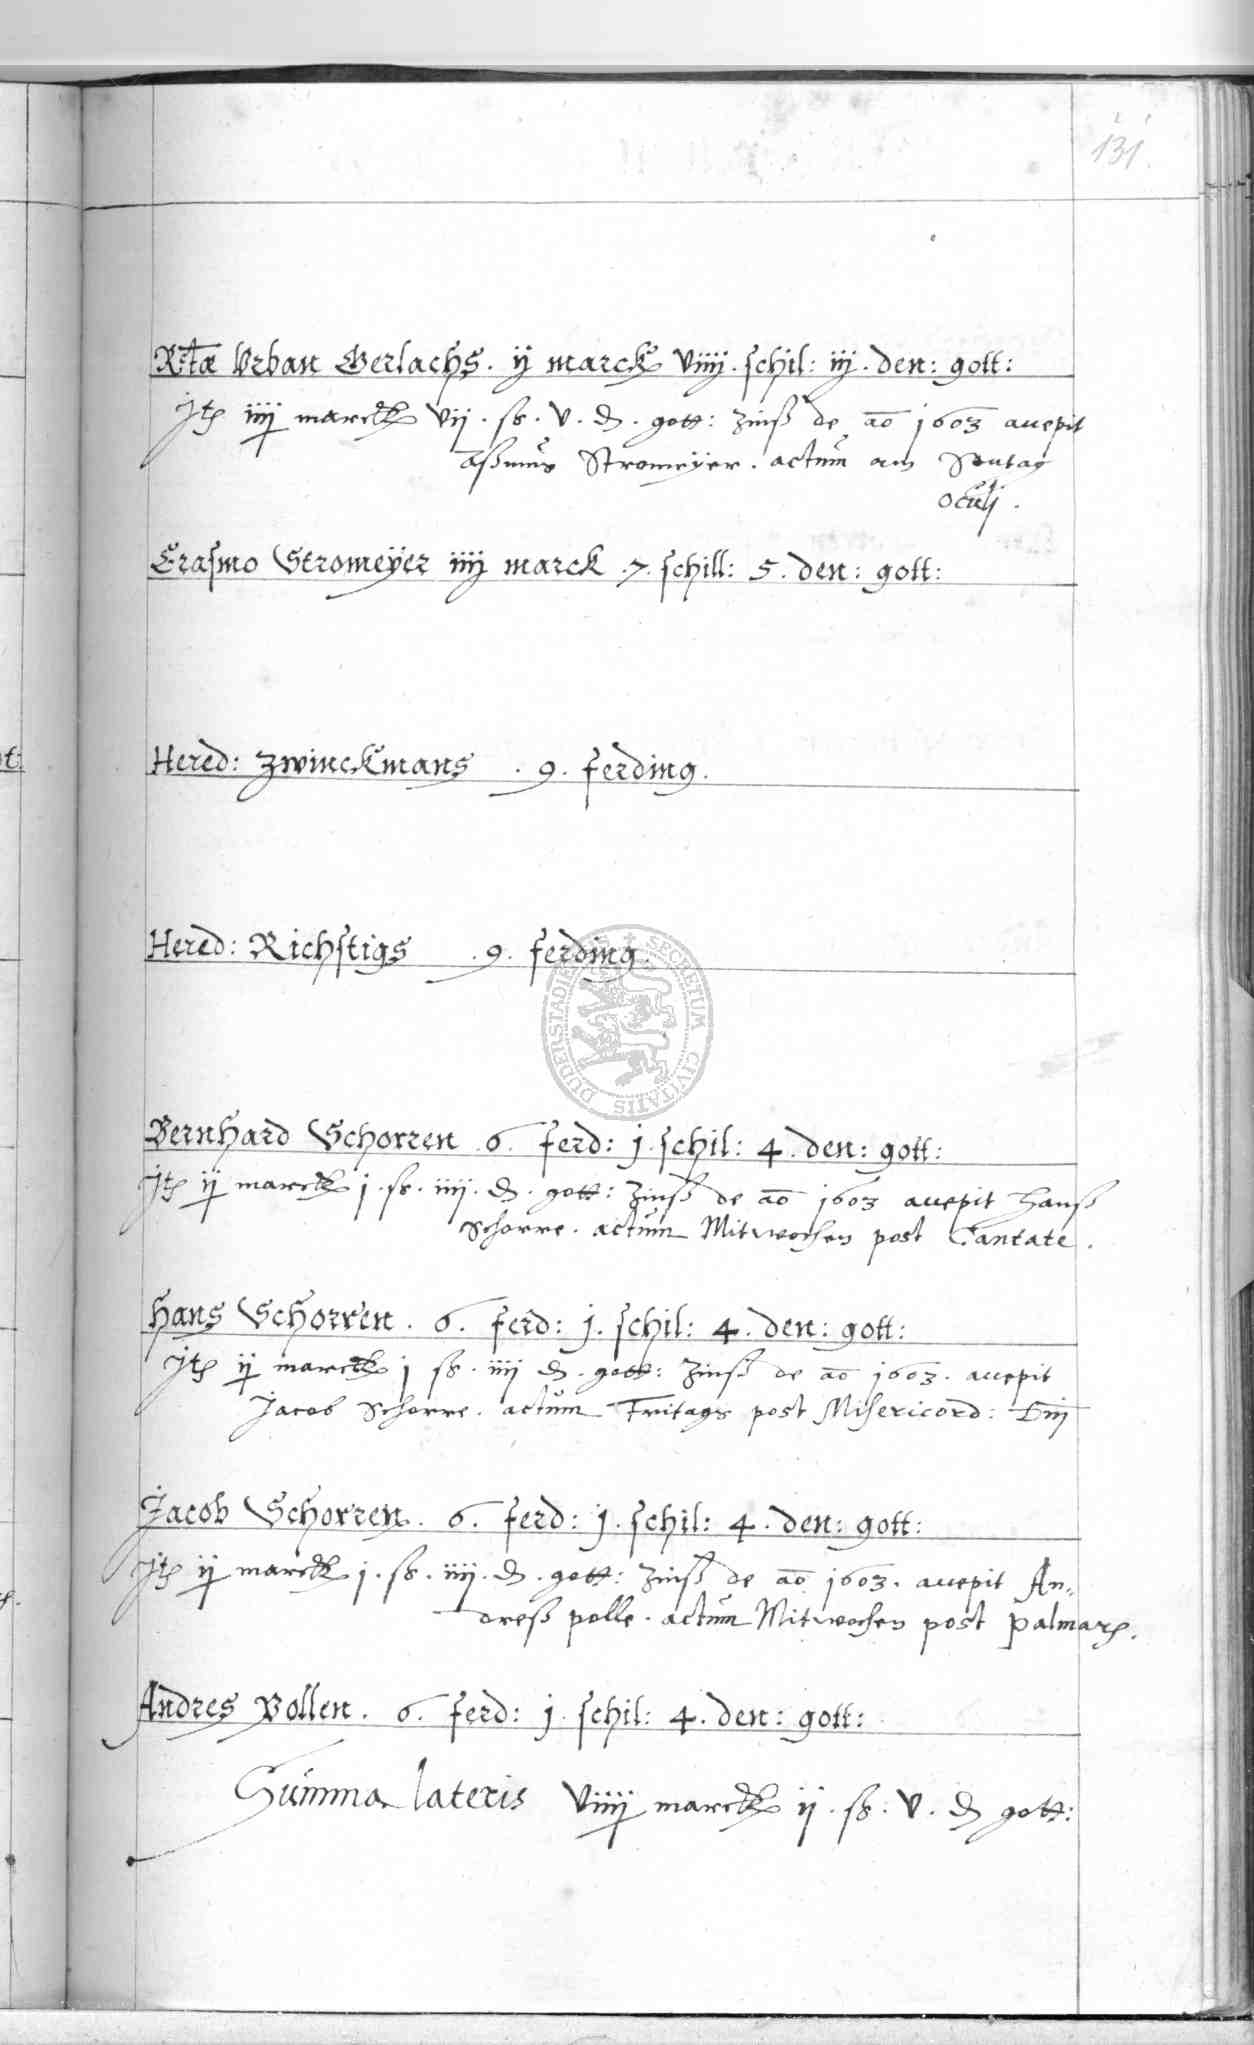 131.
Rctæ Urban Gerlachs. ij marck viiij. schil: iij. den: gott:
Jt iiij marck vij. ß. v. d. gott: Zinß de aō 1603 accepit
Aßmus Stromeÿer. actum am Sontag
Oculj.
Erasmo Stromeÿer iiij marck .7. schill: 5. den: gott:
Hered: Zwinckmans . 9. ferding.
Hered: Richstigs . 9. ferding.
SECRETUM CIVITATIS DUDERSTADIE
Bernhard Schorren 6. ferd: j. schil: 4. den: gott:
Jt ij marck j. ß. iiij. d. gott: Zinß de aō 1603 accepit Hanß
Schorre. actum Mitwochen post Cantate.
Hans Schorren. 6. ferd: j. schil: 4. den: gott:
Jt ij marck j ß. iiij d. gott: Zinß de aō 1603. accepit
Jacob Schorre. actum Fritags post Misericord: Dnj
Jacob Schorren. 6. ferd: j. schil: 4. den: gott:
Jt ij marck j. ß. iiij. d. gott: Zinß de aō 1603. accepit An=
dreß polle. actum Mitwochen post Palmar.
Andres Bollen. 6. ferd: j. schil: 4. den: gott:
Summa lateris viiij marck ij. ß. v. d gott: